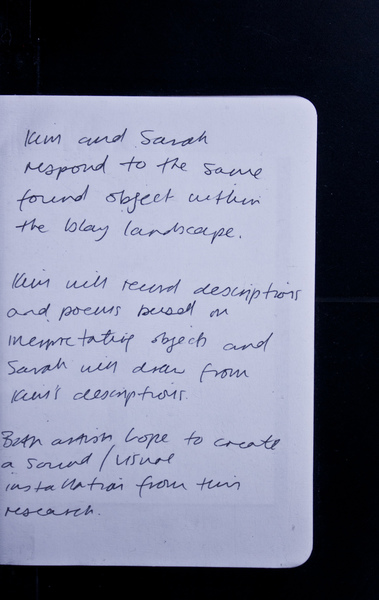 Kim and Sarah
respond to the same
found object within
the Islay landscape.
Kim will record descriptions
and poems based on
interpretating objects and
Sarah will draw from
Kim's descriptions.
Both artists hope to create
a sound / visual
installation from this
research.